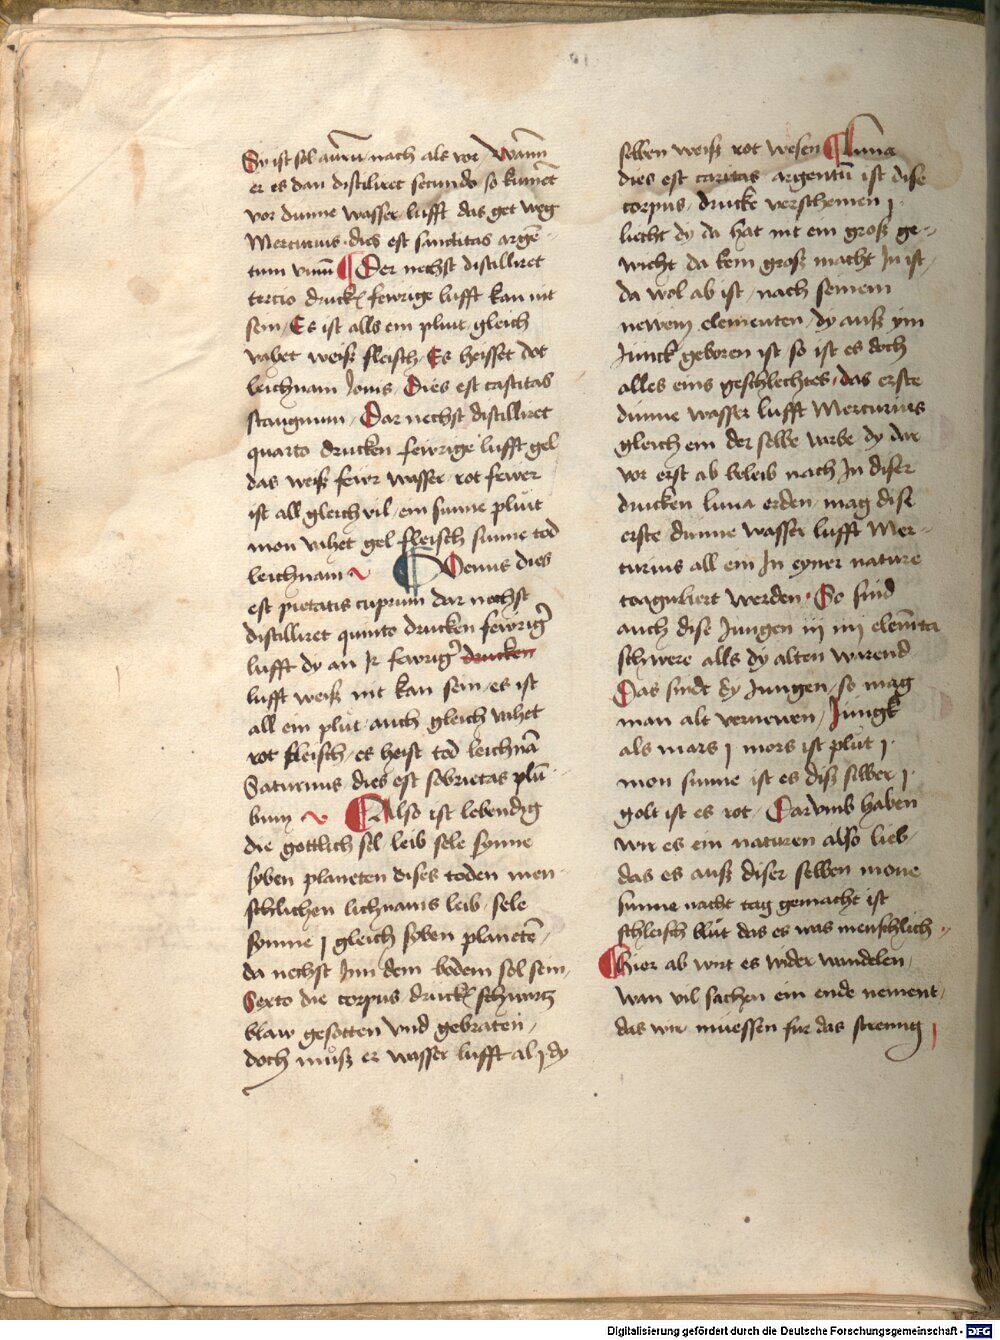 Sy ist sol aurū nach als vor / wañ
er es dan distiliret secundo so kumēt
vor dunne wasser lufft das get weg
Mercurius dies est sanctitas argē-
tum viuū ¶ Der nechst distilliret
tercio druckē fewrige lufft kan nit
sein / Es ist alls ein pluit gleich
vahet weiß fleisch / Es heisset dot
leichnam Jouis / Dies est castitas
staugnum / Dar nechst distilliret
quarto drucken fewrige lufft gel
das weiß fewr wasser rot fewer
ist all gleich vil / ein sunne pluit
mon vihet gel fleisch sunne tod
leichnam ¶ Venus dies
est pietatis cuprum dar nechst
distilliret quinto drucken fewrig
lufft dy an Ir fewrig drucken
lufft weiß nit kan sein / es ist
all ein plut auch gleich vihet
rot fleisch / es heist tod leichnā
Saturnus / dies est sobrietas plū-
bum ¶ Also ist lebendig
die gottlich sel leib sele synne
syben planeten dises toden men-
schlichen lichnams leib / sele
synne j gleich syben planetē /
da nechst Inn dem bodem sol sein /
Sexto die corpus druckē schwartz
blaw gesotten vnd gebraten /
doch muß er wasser lufft al j dy
selben weiß rot wesen ¶ Luna
dies est caritas argentū ist dise
corpus / drucke verscheinen j
liecht dy da hat nit ein groß ge-
wicht da kein groß macht In ist /
da wol ab ist / nach seinem
newem elementen / dy auß ym
Junck geboren ist so ist es doch
alles eins geschlechtes / das erste
dunne wasser lufft Mercurius
gleich ein der selbe varbe / dy dar
vor erst ab beleib nach In diser
drucken luna erden / mag dise
erste dunne wasser lufft Mer-
curius all ein In eyner nature
coaguliert werden / So sind
auch dise Jungen iij iiij elemēta
schwere alls dy alten warend
Das sindt dy Jungen / so mag
man alt vernewen / Jungk
als mars j mors ist plut j
mon sunne ist es diß silber j
golt ist es rot / Darvmb haben
wir es ein naturen also lieb /
das es auß diser selben mone
sunne nacht tag gemacht ist
schleisch blut das es was menschlich
¶ Hier ab wirt es wider wandelen /
wan vil sachen ein ende nement /
das wir muessen fur das streng j